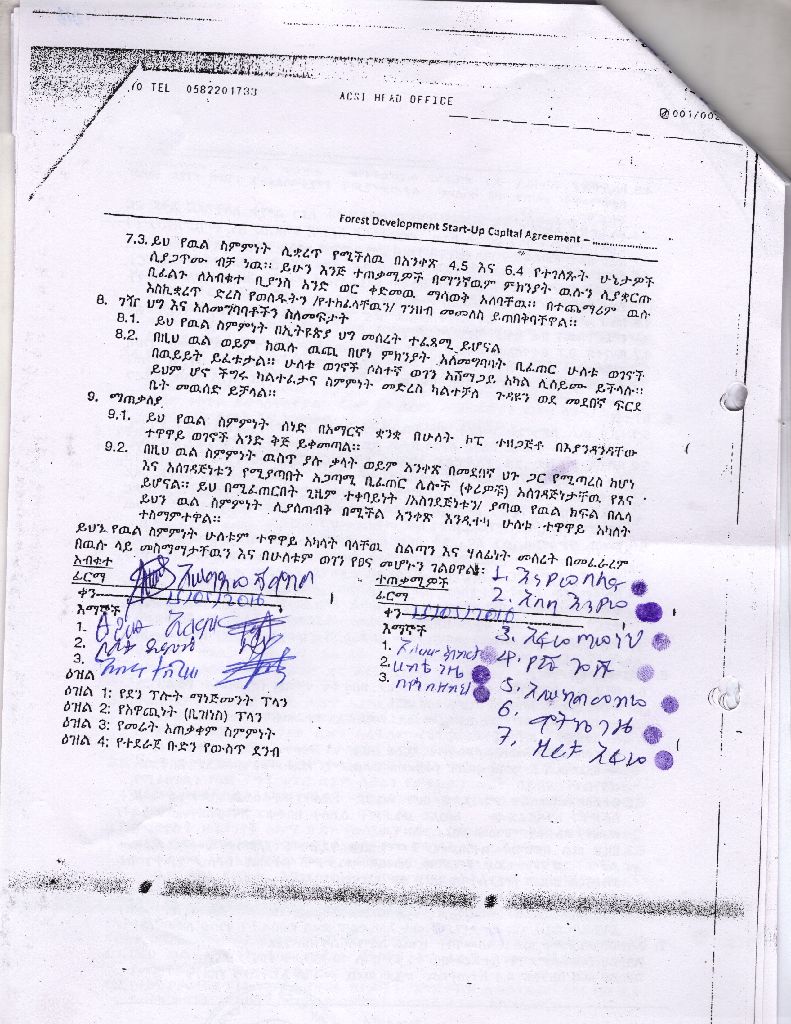 /0 TEL 0582201733 ACSI HEAD OFFICE 001/002
Forest Development Start-Up Capital Agreement – ....................
7.3. ይህ የዉል ስምምነት ሊቋረጥ የሚችለዉ በአንቀጽ 4.5 እና 6.4 የተገለጹት ሁኔታዎች
ሲያጋጥሙ ብቻ ነዉ። ይሁን እንጅ ተጠቃሚዎች በማንኛዉም ምክንያት ዉሉን ሲያቋርጡ
ቢፈልጉ ለአብቁተ ቢያንስ አንድ ወር ቀድመዉ ማሳወቅ አለባቸዉ። በተጨማሪም ዉሉ
እስኪቋረጥ ድረስ የወሰዱትን /የተከፈላቸዉን/ ገንዘብ መመለስ ይጠበቅባቸዋል።
8. ገዥ ህግ እና አለመግባባቶችን ስለመፍታት
8.1. ይህ የዉል ስምምነት በኢትዩጵያ ህግ መሰረት ተፈጻሚ ይሆናል
8.2. በዚህ ዉል ወይም ከዉሉ ዉጪ በሆነ ምክንያት አለመግባባት ቢፈጠር ሁለቱ ወገኖች
በዉይይት ይፈቱታል። ሁለቱ ወገኖች ሶስተኛ ወገን አሸማጋይ አካል ሊሰይሙ ይችላሉ።
ይህም ሆኖ ችግሩ ካልተፈታና ስምምነት መድረስ ካልተቻለ ጉዳዩን ወደ መደበኛ ፍርደ
ቤት መዉሰድ ይቻላል።
9. ማጠቃለያ
9.1. ይህ የዉል ስምምነት ሰነድ በአማርኛ ቋንቋ በሁለት ኮፒ ተዘጋጅቶ በእያንዳንዳቸው
ተዋዋይ ወገኖች አንድ ቅጅ ይቀመጣል።
9.2. በዚህ ዉል ስምምነት ዉስጥ ያሉ ቃላት ወይም አንቀጽ በመደበኛ ህጉ ጋር የሚጣረስ ከሆነ
እና አስገዳጅነቱን የሚያጣበት አጋጣሚ ቢፈጠር ሌሎች (ቀሪዎቹ) አስገዳጅነታቸዉ የጸና
ይሆናል። ይህ በሚፈጠርበት ጊዜም ተቀባይነት /አስገደጅነቱን/ ያጣዉ የዉል ክፍል በሌላ
ይህን ዉል ስምምነት ሊያስጠብቅ በሚችል አንቀጽ እንዲተካ ሁለቱ ተዋዋይ አካላት
ተስማምተዋል።
ይህን የዉል ስምምነት ሁለቱም ተዋዋይ አካላት ባላቸዉ ስልጣን እና ሃላፊነት መሰረት በመፈራረም
በዉሉ ላይ መስማማታቸዉን እና በሁለቱም ወገን የፀና መሆኑን ገልፀዋል።
አብቁተ
ፊርማ
ቀን 15/05/2010
እማኞች
1.
2.
3.
ተጠቃሚዎች
ፊርማ
ቀን 15/05/2010
እማኞች
1.
2.
3.
1.
2.
3.
4.
5.
6.
7.
ዕዝል
ዕዝል 1: የደን ፕሎት ማነጅመንት ፕላን
ዕዝል 2: የአዋጪነት (ቢዝነስ) ፕላን
ዕዝል 3: የመሬት አጠቃቀም ስምምነት
ዕዝል 4: የተደራጀ ቡድን የውስጥ ደንብ